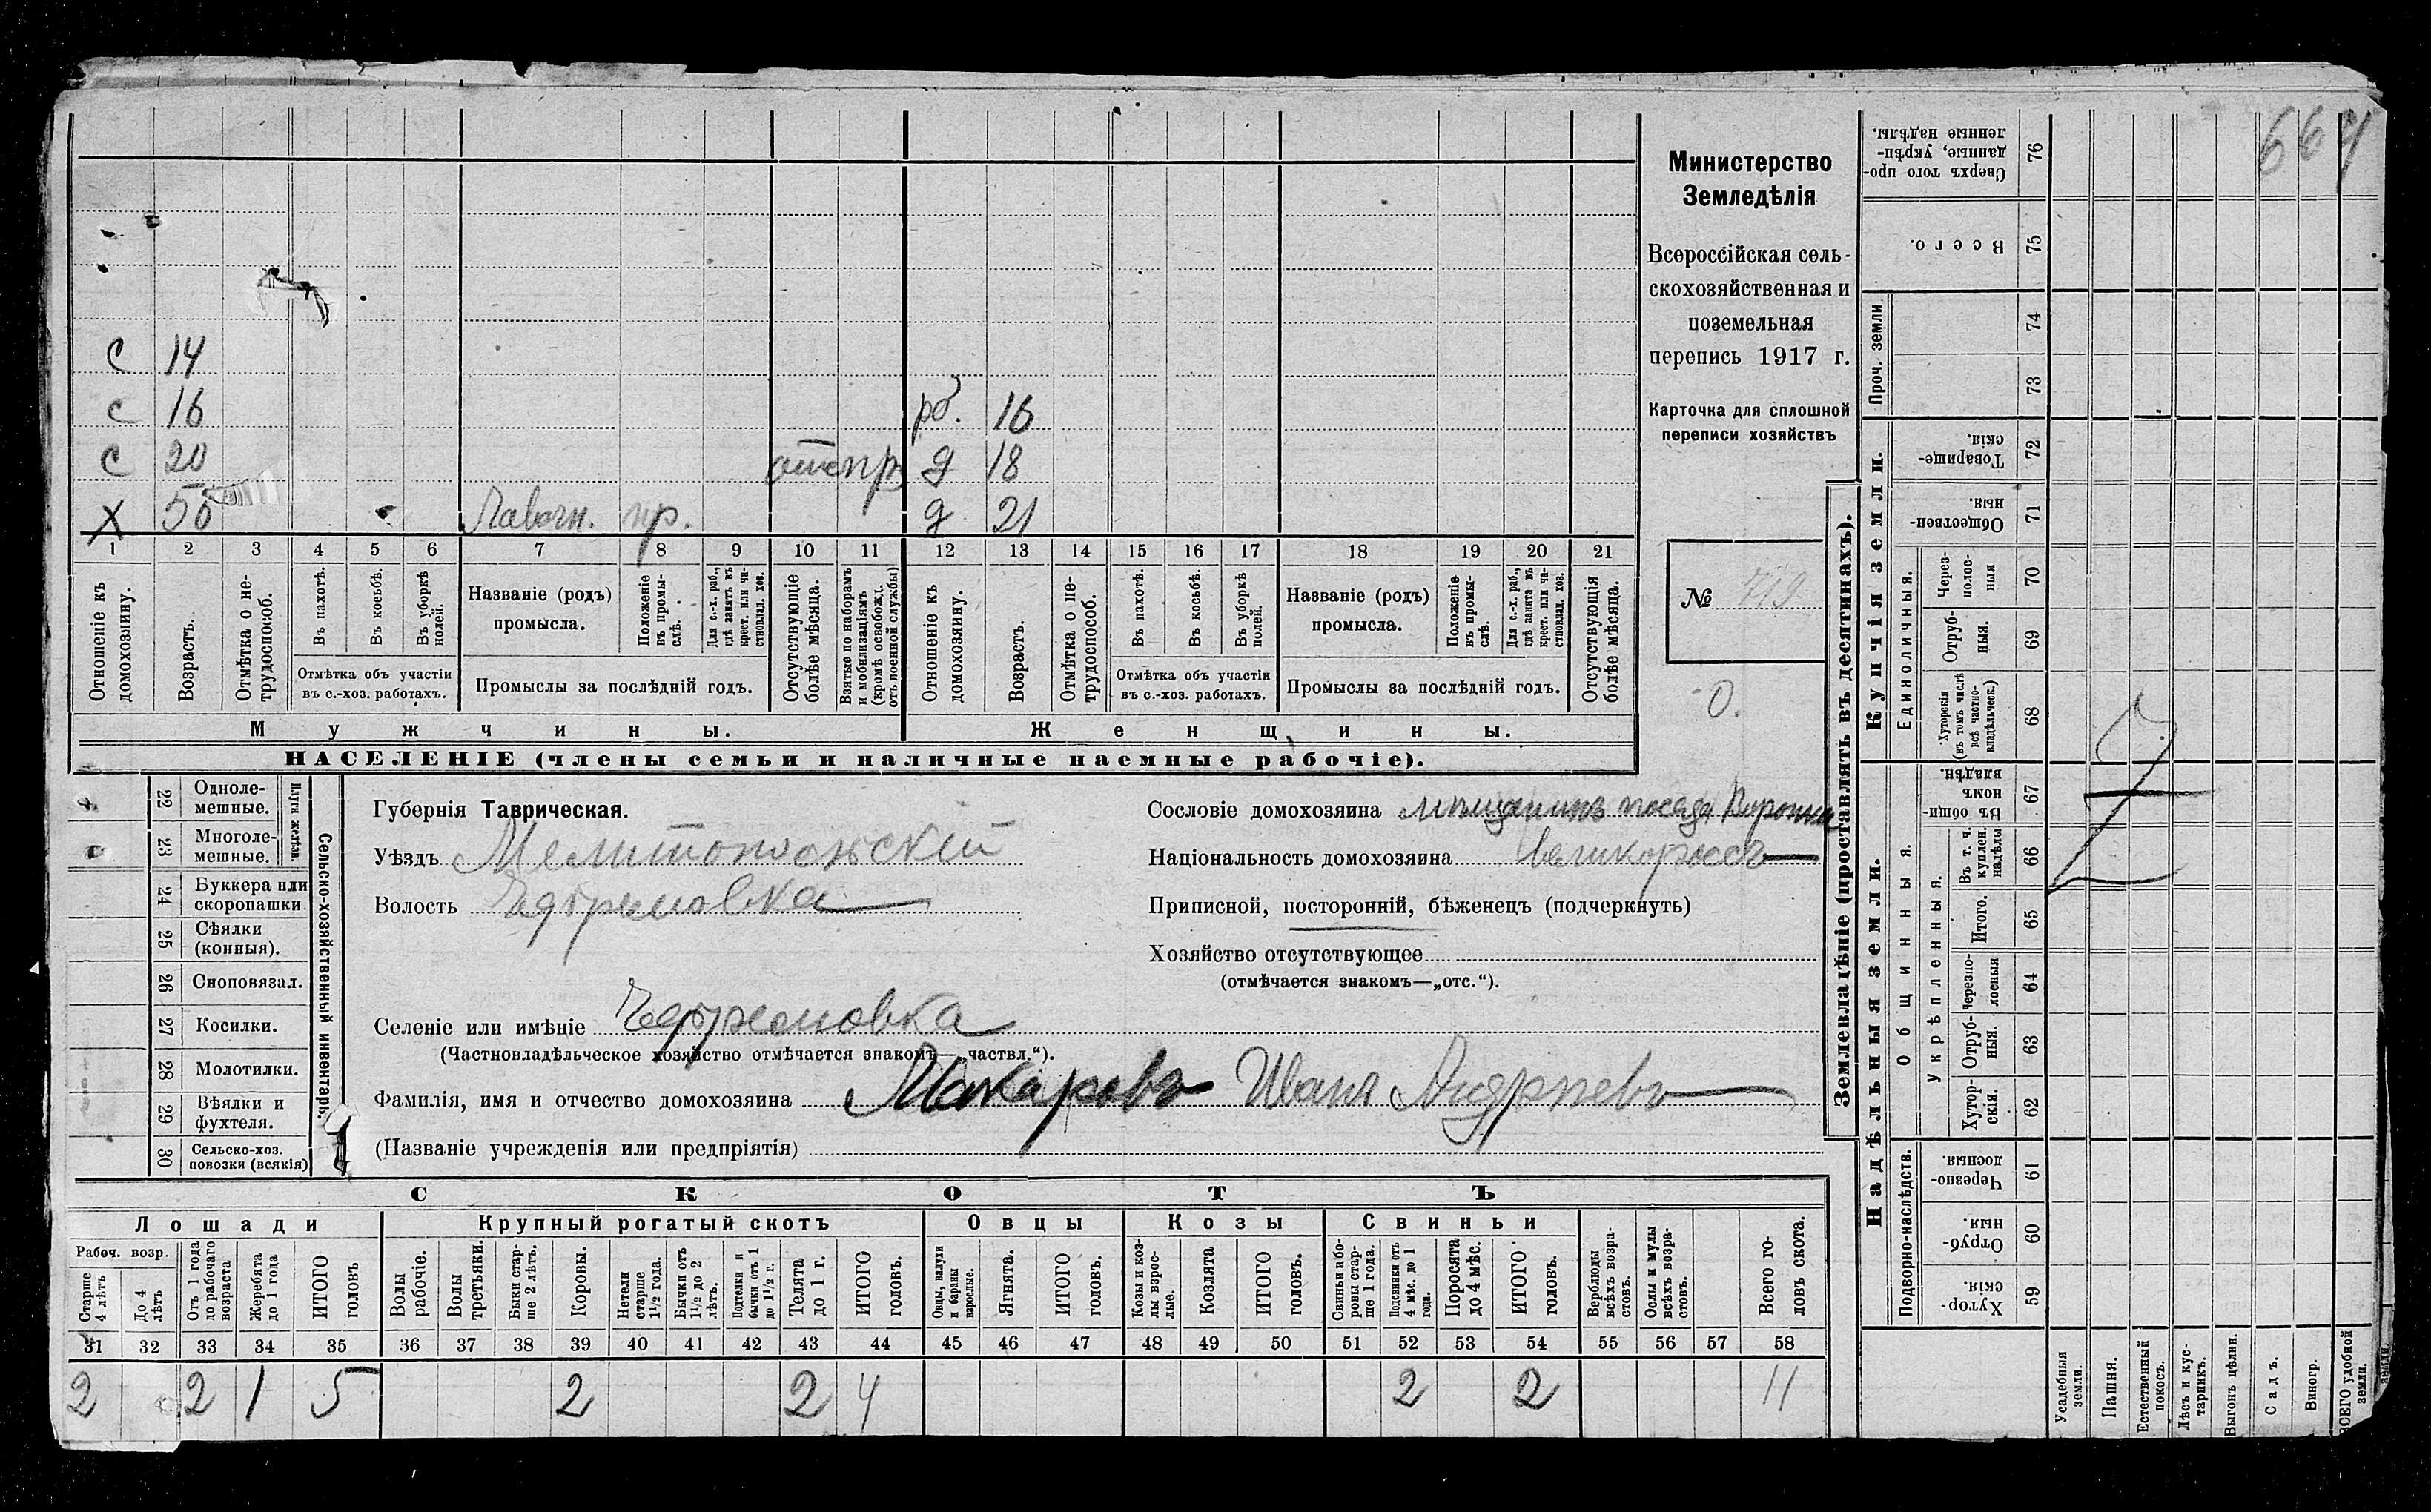 664
Министерство
Земледѣлія
Всероссійская сель-
скохозяйственная и
поземельная
перепись 1917 г.
Карточка для сплошной
переписи хозяйствъ
№ 719
0.
С 14
с 16 рб. 16
с 20 д 18
Х 50 Лавочн. пр. д 21
1 2 3 4 5 6 7 8 9 10 11 12 13 14 15 16 17 18 19 20 21
Отношеніе къ домохозяину.
Возрастъ.
Отмѣтка о не-трудоспособ.
Въ пахотѣ.
Въ косьбѣ.
Въ уборкѣ полей.
Отмѣтка объ участіи
въ с.-хоз. работахъ.
Названіе (родъ)
промысла.
Положеніе въ промы-слѣ.
Для с.-х. раб., гдѣ занятъ въ крест. или ча-стновлад. хоз.
Промыслы за послѣдній годъ.
Отсутствующіе болѣе мѣсяца.
Взятые по наборамъ и мобилизаціямъ (кромѣ освобожд. отъ военной службы)
Отношеніе къ домохозяину.
Возрастъ.
Отмѣтка о не-трудоспособ.
Въ пахотѣ.
Въ косьбѣ.
Въ уборкѣ полей.
Отмѣтка объ участіи
въ с.-хоз. работахъ.
Названіе (родъ)
промысла.
Положеніе въ промы-слѣ.
Для с.-х. раб., гдѣ занята въ крест. или ча-стновлад. хоз.
Промыслы за послѣдній годъ.
Отсутствующія болѣе мѣсяца.
Мужчины. Женщины.
НАСЕЛЕНІЕ (члены семьи и наличные наемные рабочіе).
Сельско-хозяйственный инвентарь.
Плуги желѣзн.
22 Одноле-мешные.
23 Многоле-мешные.
24 Буккера или скоропашки.
25 Сѣялки (конныя).
26 Сноповязал.
27 Косилки.
28 Молотилки.
29 Вѣялки и фухтеля.
30 Сельско-хоз. повозки (всякія)
Губернія Таврическая.
Уѣздъ Мелитопольскій
Волость Ефремовка
Селеніе или имѣніе Ефремовка
(Частновладѣльческое хозяйство отмѣчается знакомъ—„частвл.“).
Фамилія, имя и отчество домохозяина Макаровъ Иванъ Андрѣевъ
(Названіе учрежденія или предпріятія)
Сословіе домохозяина мѣщанинъ посада Воронка
Національность домохозяина Великороссъ
Приписной, посторонній, бѣженецъ (подчеркнуть)
Хозяйство отсутствующее
(отмѣчается знакомъ—„отс.“).
СКОТЪ
Лошади Крупный рогатый скотъ Овцы Козы Свиньи
Рабоч. возр.
Старше 4 лѣтъ
До 4 лѣтъ
Отъ 1 года до рабочаго возраста
Жеребята до 1 года
ИТОГО головъ
Волы рабочіе.
Волы третьяки.
Быки стар-ше 2 лѣтъ.
Коровы.
Нетели старше 1½ года.
Бычки отъ 1½ до 2 лѣтъ.
Подтелки и бычки отъ 1 до 1½ г.
Телята до 1 г.
ИТОГО головъ.
Овцы, валухи и бараны взрослые.
Ягнята.
ИТОГО головъ.
Козы и коз-лы взрос-лые.
Козлята
ИТОГО головъ.
Свиньи и бо-ровы стар-ше 1 года.
Подсвинки отъ 4 мѣс. до 1 года.
Поросята до 4 мѣс.
ИТОГО головъ.
Верблюды всѣхъ возра-стовъ.
Ослы и мулы всѣхъ возра-стовъ.
Всего го-ловъ скота.
31 32 33 34 35 36 37 38 39 40 41 42 43 44 45 46 47 48 49 50 51 52 53 54 55 56 57 58
2 2 1 5 2 2 4 2 2 11
Землевладѣніе (проставлять въ десятинахъ).
Купчія земли.
Надѣльныя земли.
Сверхъ того про-данные, укрѣп-ленные надѣлы. 76
Всего. 75
Проч. земли 74 73
Товарище-скія. 72
Обществен-ныя 71
Единоличныя.
Через-полос-ныя 70
Отруб-ныя. 69
Хуторскія (въ томъ числѣ всѣ частно-владѣльческ.) 68
Общинныя.
Въ общи-номъ владѣн. 67
Укрѣпленныя.
Въ т. ч. куплен. надѣлы 66
Итого. 65
Черезпо-лосныя 64
Отруб-ныя. 63
Хутор-скія. 62
Подворно-наслѣдств.
Черезпо-лосныя. 61
Отруб-ныя. 60
Хутор-скія. 59
Усадебныя земли.
Пашня.
Естественный покосъ.
Лѣсъ и кус-тарникъ.
Выгонъ цѣлин.
Садъ.
Виногр.
ВСЕГО удобной земли.